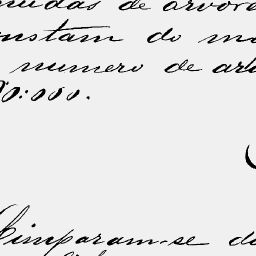 de arvor
nstam do m
numero de ar
0:000.
Limparam-se d